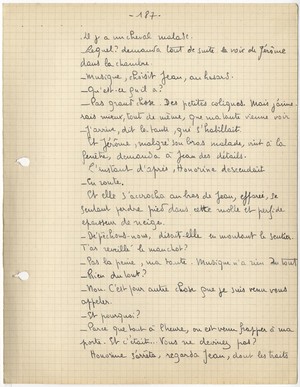 - 187 -
Il y a un cheval malade.
_ Lequel? demanda tout de suite la voix de Jérôme
dans la chambre.
_ Musique, choisit Jean, au hasard.
_ Qu'est-ce qu'il a?
_ Pas grand'chose. Des petites coliques. Mais j'aime-
rais mieux, tout de même, que ma tante vienne voir
_ J'arrive, dit la tante, qui s'habillait.
Et Jérôme, malgré son bras malade, vint à la
fenêtre, demanda à Jean des détails.
L'instant d'après, Honorine descendait
_ En route.
Et elle s'accrocha au bras de Jean, effarée, se
sentant perdre pied dans cette molle et perfide
épaisseur de neige.
_ Dépêchons-nous, disait-elle en montant le sentier.
T'as réveillé le manchot?
_ Pas la peine, ma tante. Musique n'a rien du tout
_ Rien du tout?
_ Non. C'est pour autre chose que je suis venu vous
appeler.
_ Et pourquoi?
_ Parce que tout à l'heure, on est venu frapper à ma
porte. Et c'était... Vous ne devinez pas?
Honorine s'arrêta, regarda Jean, dont les traits